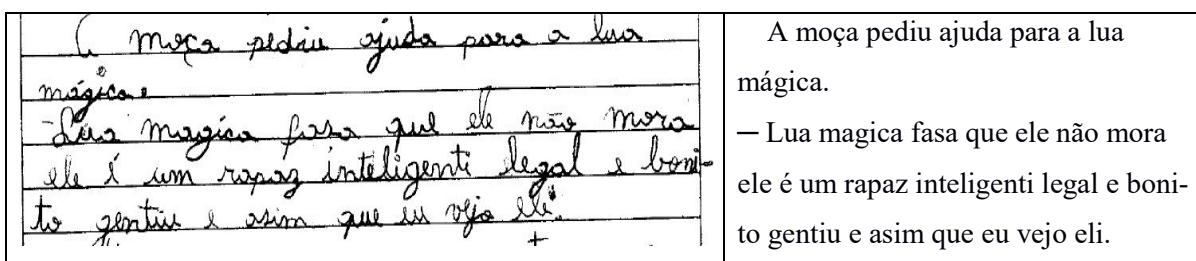 A moça pediu ajuda para a lua
mágica.
-Lua magica fasa que ele não mora
ele é um rapaz inteligenti legal e boni-
to gentiu e asim que eu vejo eli.
A moça pediu ajuda para a lua
mágica.
─ Lua magica fasa que ele não mora
ele é um rapaz inteligenti legal e boni-
to gentiu e asim que eu vejo eli.